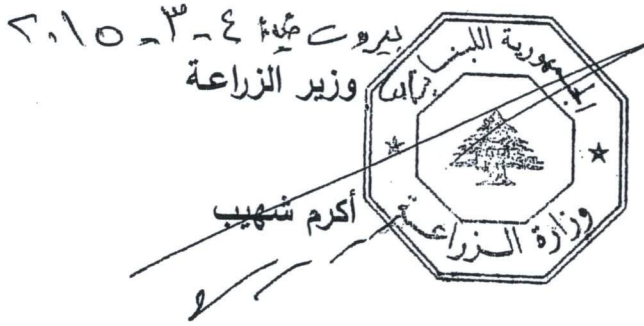 بيروت في ٤-٣-٢٠١٥
وزير الزراعة
أكرم شهيب
الجمهورية اللبنانية
وزارة الزراعة